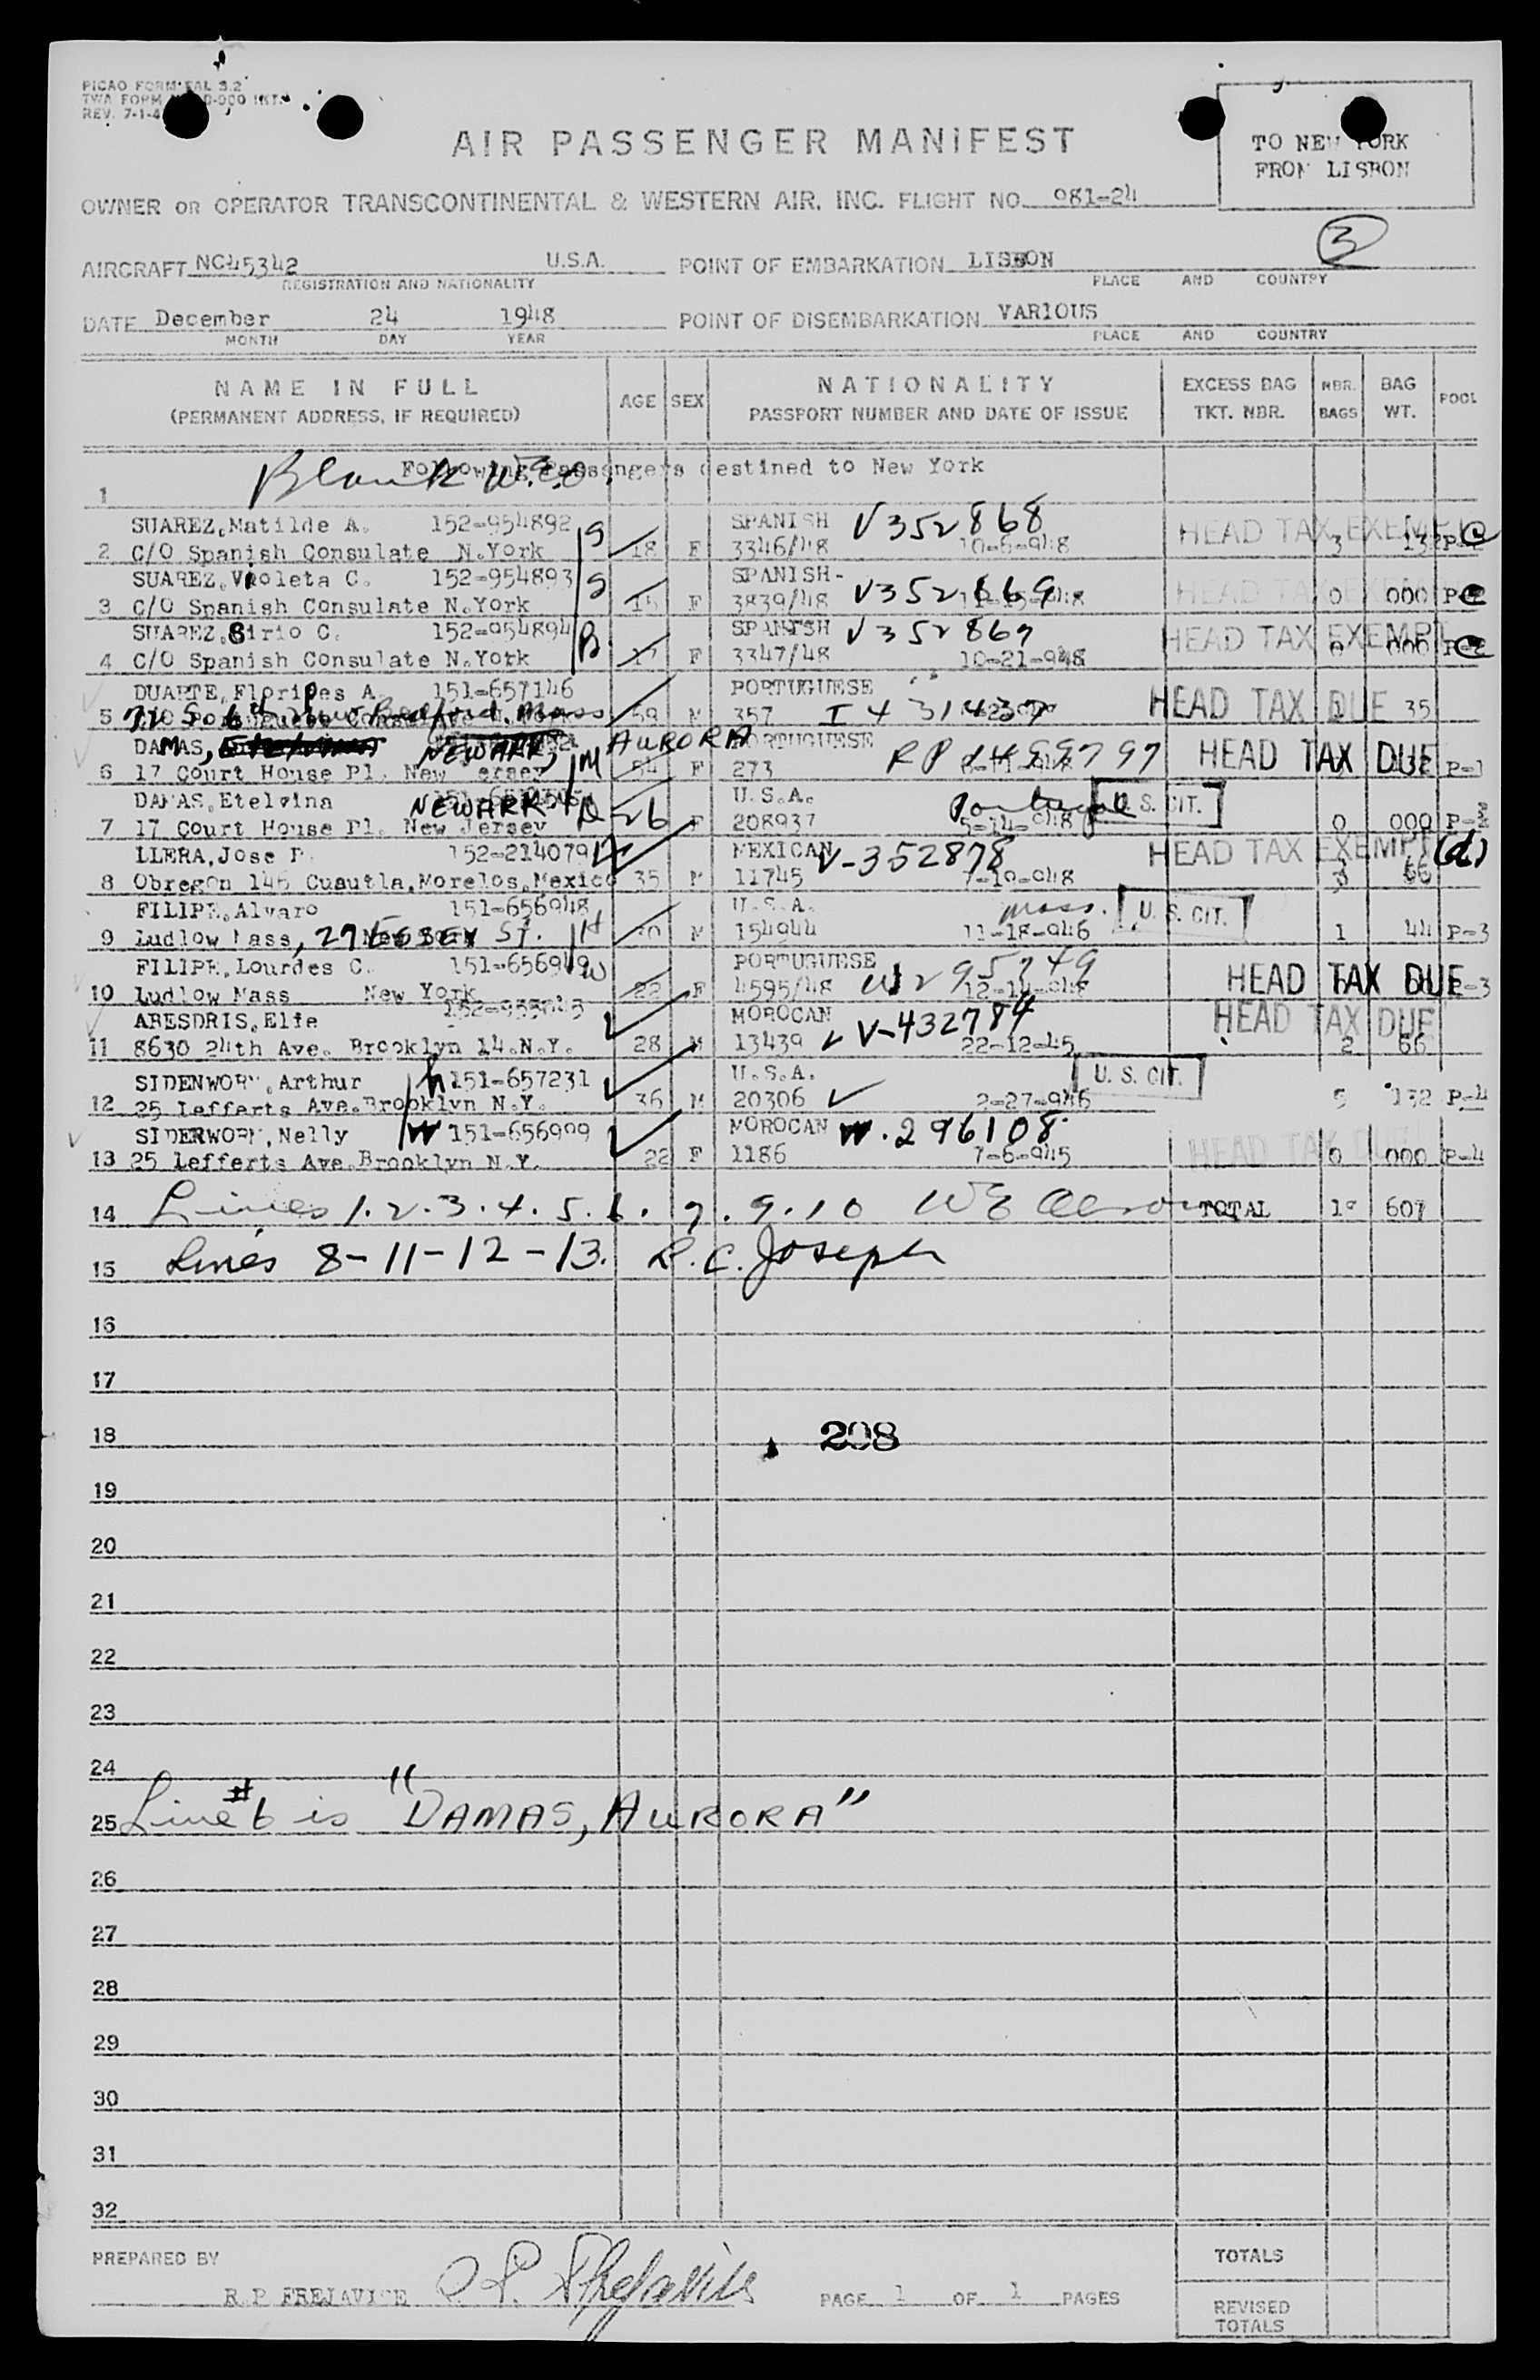 PICAO FORM FAL 3.2
TWA FORM
REV. 7-1-4
AIR PASSENGER MANIFEST
TO NEW YORK
FROM LISBON
OWNER OR OPERATOR TRANSCONTINENTAL & WESTERN AIR, INC. FLIGHT NO. 981-24
3
AIRCRAFT NC45342 U.S.A. POINT OF EMBARKATION LISBON
REGISTRATION AND NATIONALITY PLACE AND COUNTRY
DATE December 24 1948 POINT OF DISEMBARKATION VARIOUS
MONTH DAY YEAR PLACE AND COUNTRY
NAME IN FULL AGE SEX NATIONALITY EXCESS BAG NBR. BAG POOL
(PERMANENT ADDRESS, IF REQUIRED) PASSPORT NUMBER AND DATE OF ISSUE TKT. NBR. BAGS WT.
Following Passengers destined to New York
1 Blank
SUAREZ,Matilde A. 152-954892 S SPANISH V352868 HEAD TAX EXEMPT
2 C/O Spanish Consulate N.York 18 F 3346/48 10-6-948 3 132 P-2
SUAREZ,Violeta C. 152-954893 S SPANISH- V352869 HEAD TAX EXEMPT
3 C/O Spanish Consulate N.York 15 F 3839/48 0 000 P-2
SUAREZ,Sirio C. 152-954894 B SPANISH V352867 HEAD TAX EXEMPT
4 C/O Spanish Consulate N.York 17 F 3347/48 10-21-948 0 000 P-2
DUARTE,Floripes A. 151-657146 PORTUGUESE
5 New Bedford, Mass 59 M 357 I 431437 HEAD TAX DUE 35
DAMAS, NEWARK, M AURORA PORTUGUESE RP HEAD TAX DUE
6 17 Court House Pl. New Jersey 54 F 273 P-1
DAMAS,Etelvina NEWARK D 26 U.S.A. Portugal U.S. CIT.
7 17 Court House Pl. New Jersey F 208937 5-14-948 0 000 P-1
LLERA,Jose 152-214079 MEXICAN V-352878 HEAD TAX EXEMPT (d)
8 Obregon 145 Cuautla,Morelos,Mexico 35 M 11745 7-10-948 3 66
FILIPE,Alvaro 151-656948 U.S.A. mass. U.S. CIT.
9 Ludlow Mass, 27 ST. H M 154944 11-18-946 1 44 P-3
FILIPE,Lourdes C. 151-656949 W PORTUGUESE W295749 HEAD TAX DUE
10 Ludlow Mass New York 22 F 4595/48 12-14-948 P-3
ABESDRIS,Elie MOROCAN V-432784 HEAD TAX DUE
11 8630 24th Ave. Brooklyn 14.N.Y. 28 M 13439 22-12-45 2 66
SIDENWORM,Arthur h 151-657231 U.S.A. U.S. CIT.
12 25 Lefferts Ave.Brooklyn N.Y. 36 M 20306 2-27-946 5 132 P-4
SIDERWORM,Nelly W 151-656999 MOROCAN W.296108 HEAD TAX DUE
13 25 Lefferts Ave.Brooklyn N.Y. 22 F 1186 7-6-945 0 000 P-4
14 Lines 1.2.3.4.5.6.7.9.10 WE TOTAL 607
15 Lines 8-11-12-13. R.C. Joseph
16
17
18 298
19
20
21
22
23
24
25 Line #6 is "DAMAS, AURORA"
26
27
28
29
30
31
32
PREPARED BY TOTALS
R P FREJAVISE PAGE 1 OF 1 PAGES
REVISED
TOTALS